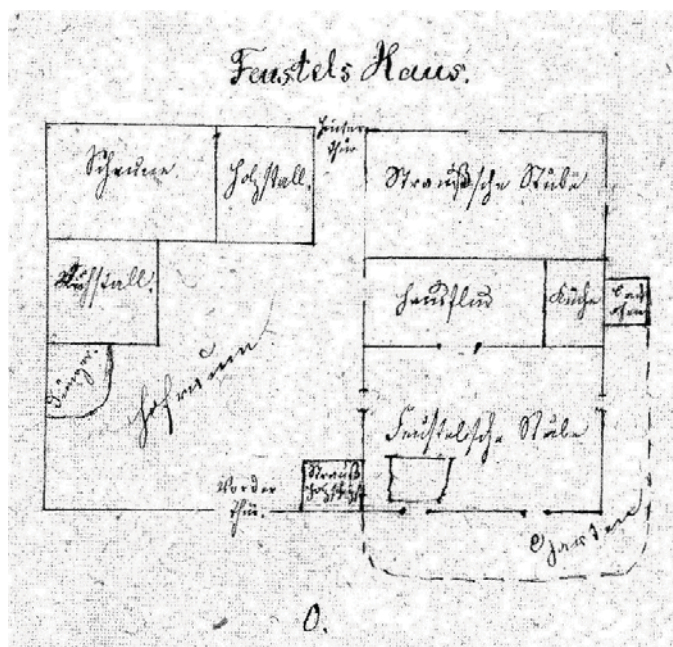 Feustels Haus.
Scheune
Holzstall.
Hinter
thür
Straußsche Stube
Kuhstall.
Hausflur
Küche
Back
ofen
Dünger.
Hofraum.
Feustelsche Stube
Strauß
Vorder
thür.
Garten
O.